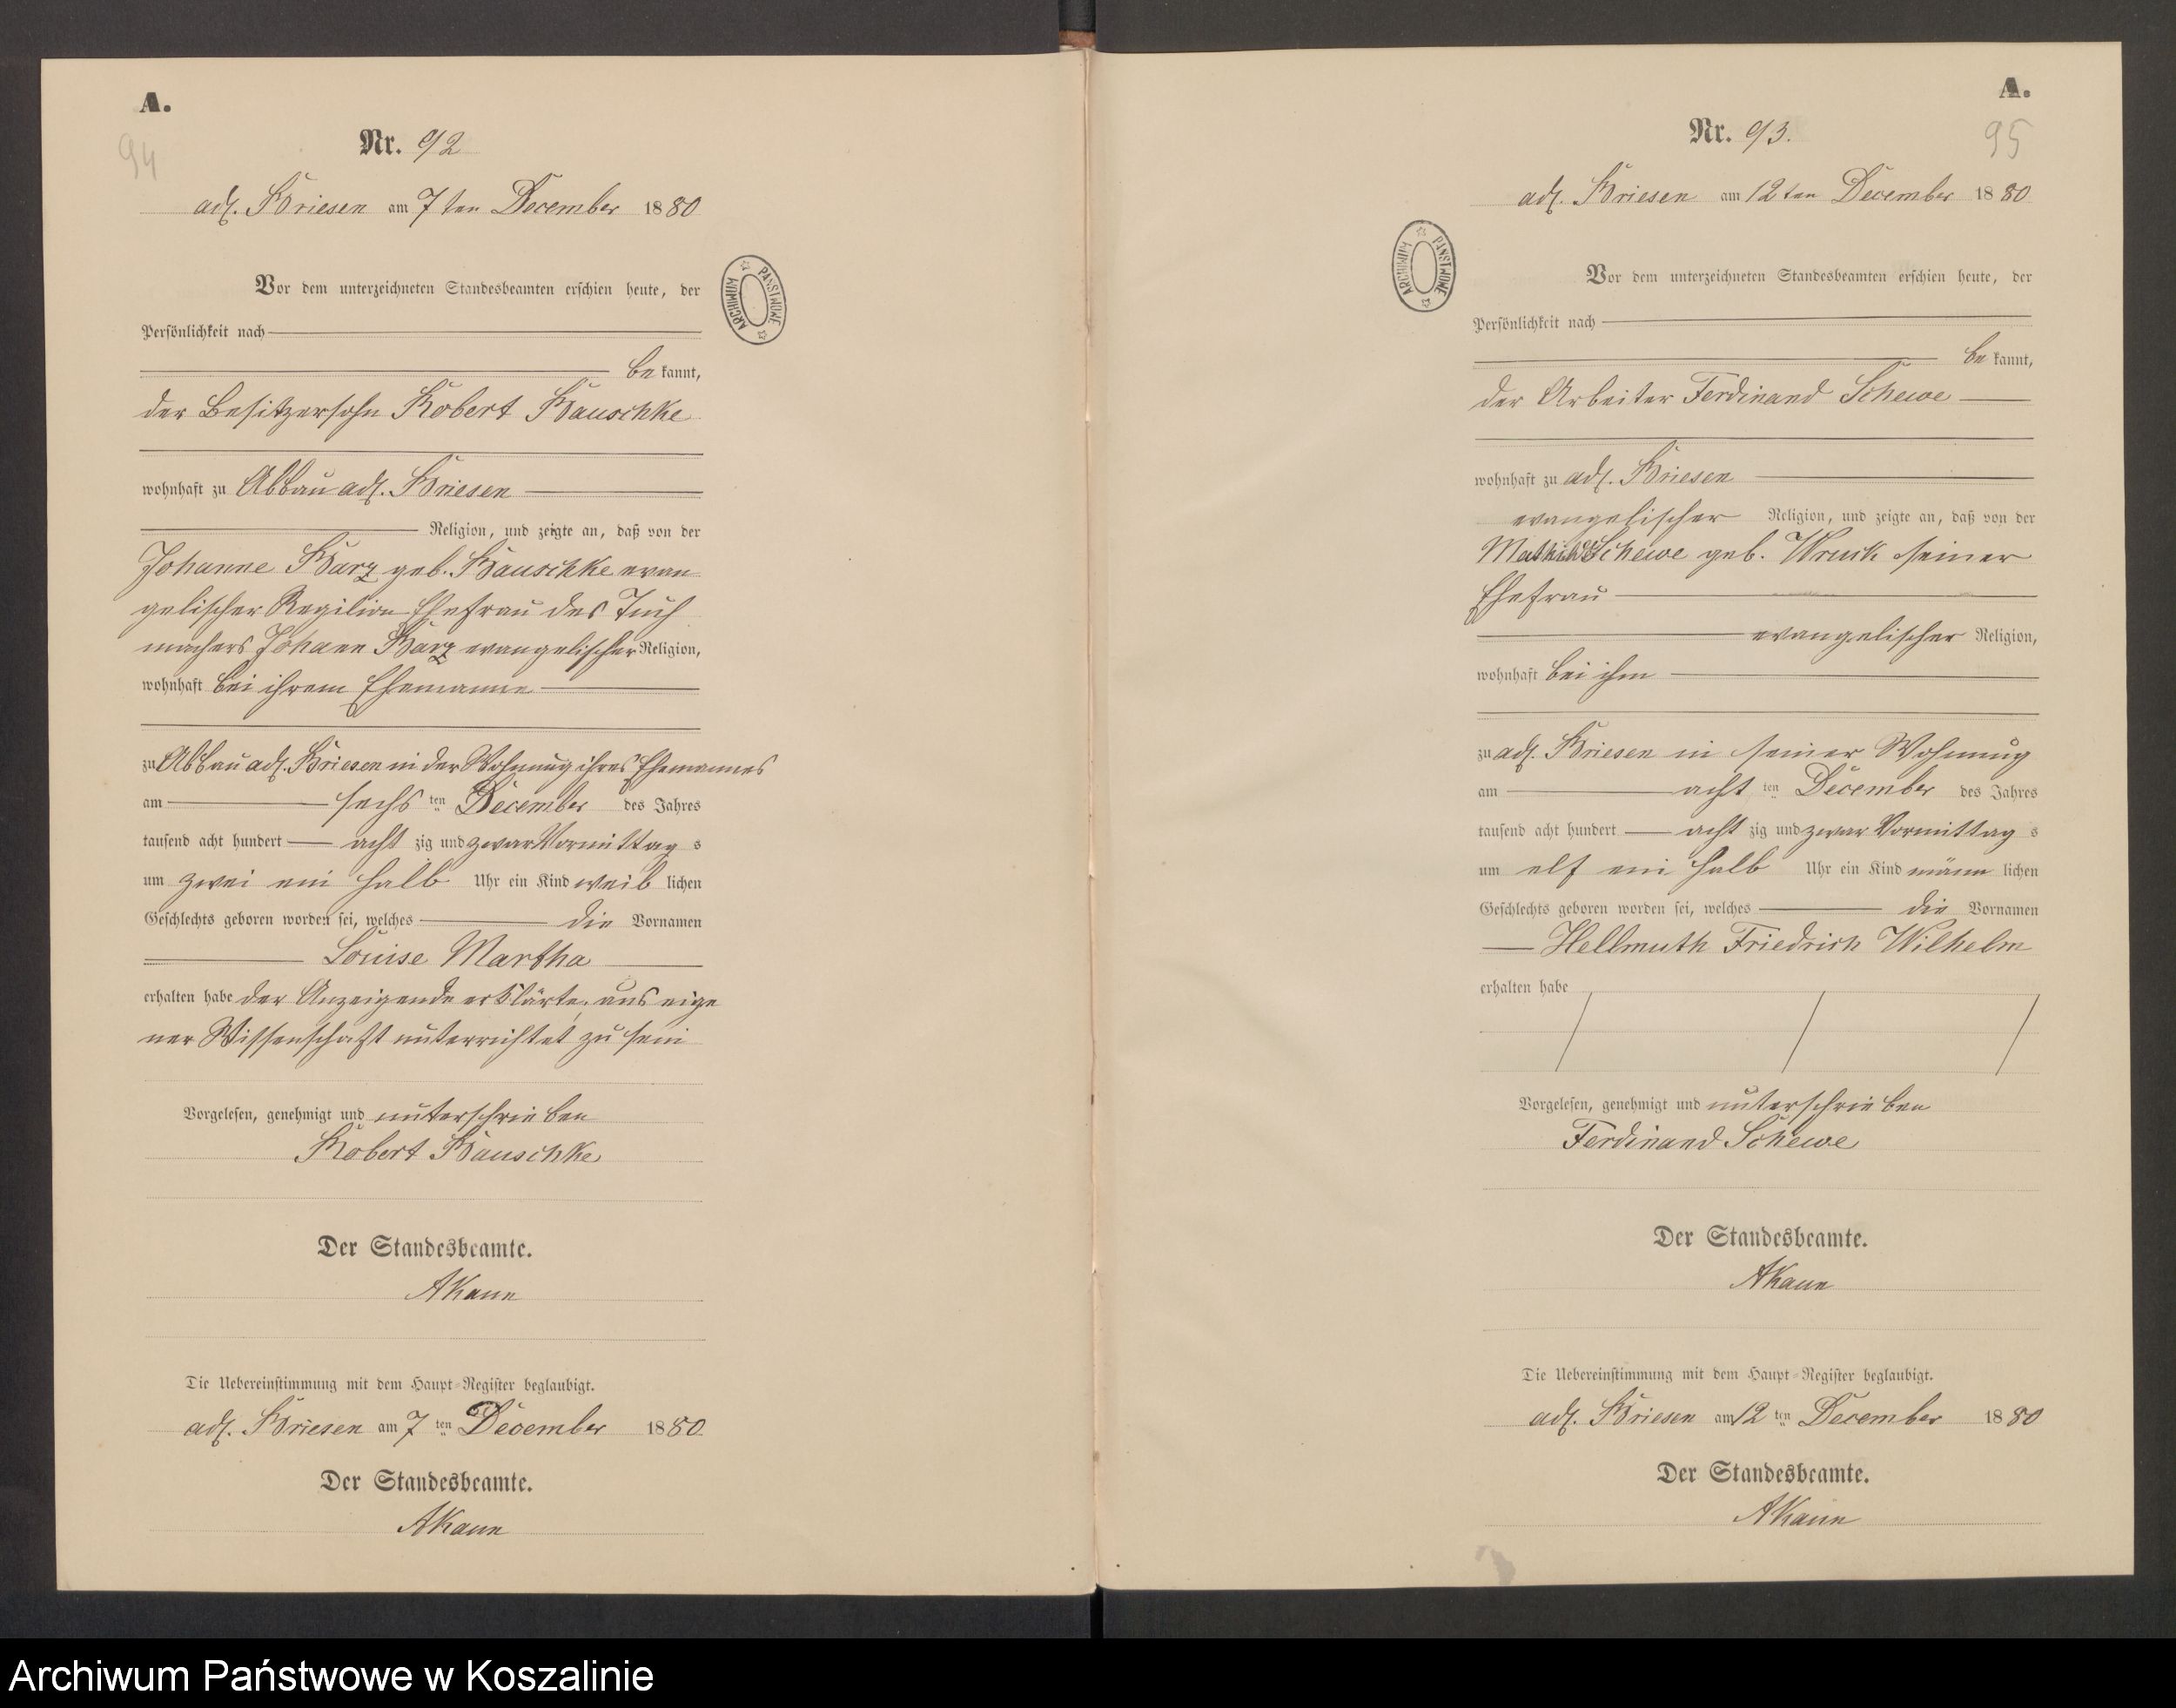 A.
94
Nr. 92
adl. Briesen am 7ten December 1880
Vor dem unterzeichneten Standesbeamten erschien heute, der
Persönlichkeit nach
be kannt,
der Besitzersohn Robert Bauschke
wohnhaft zu Abbau adl. Briesen
Religion, und zeigte an, daß von der
Johanne Barz geb. Bauschke evan
gelischer Regilion Ehefrau des Tuch
machers Johann Barz evangelischer Religion,
wohnhaft bei ihrem Ehemanne
zu Abbau adl. Briesen in der Wohnung ihres Ehemannes
am sechs ten December des Jahres
tausend acht hundert acht zig und zwar Vormittag s
um zwei ein halb Uhr ein Kind weib lichen
Geschlechts geboren worden sei, welches die Vornamen
Louise Martha
erhalten habe der Anzeigende erklärte, aus eige
ner Wissenschaft unterrichtet zu sein
Vorgelesen, genehmigt und unterschrieben
Robert Bauschke
Der Standesbeamte.
AKann
Die Uebereinstimmung mit dem Haupt-Register beglaubigt.
adl. Briesen am 7 ten December 1880
Der Standesbeamte.
AKann
ARCHIWUM PAŃSTWOWE
A.
95
Nr. 93.
adl. Briesen am 12ten December 1880
ARCHIWUM PAŃSTWOWE
Vor dem unterzeichneten Standesbeamten erschien heute, der
Persönlichkeit nach
be kannt,
der Arbeiter Ferdinand Schewe
wohnhaft zu adl. Briesen
evangelischer Religion, und zeigte an, daß von der
Mathilde Schewe geb. Wruck seiner
Ehefrau
evangelischer Religion,
wohnhaft bei ihm
zu adl. Briesen in seiner Wohnung
am acht ten December des Jahres
tausend acht hundert acht zig und zwar Vormittag s
um elf ein halb Uhr ein Kind männ lichen
Geschlechts geboren worden sei, welches die Vornamen
Hellmuth Friedrich Wilhelm
erhalten habe
Vorgelesen, genehmigt und unterschrieben
Ferdinand Schewe
Der Standesbeamte.
AKann
Die Uebereinstimmung mit dem Haupt-Register beglaubigt.
adl. Briesen am 12 ten December 1880
Der Standesbeamte.
AKann
Archiwum Państwowe w Koszalinie